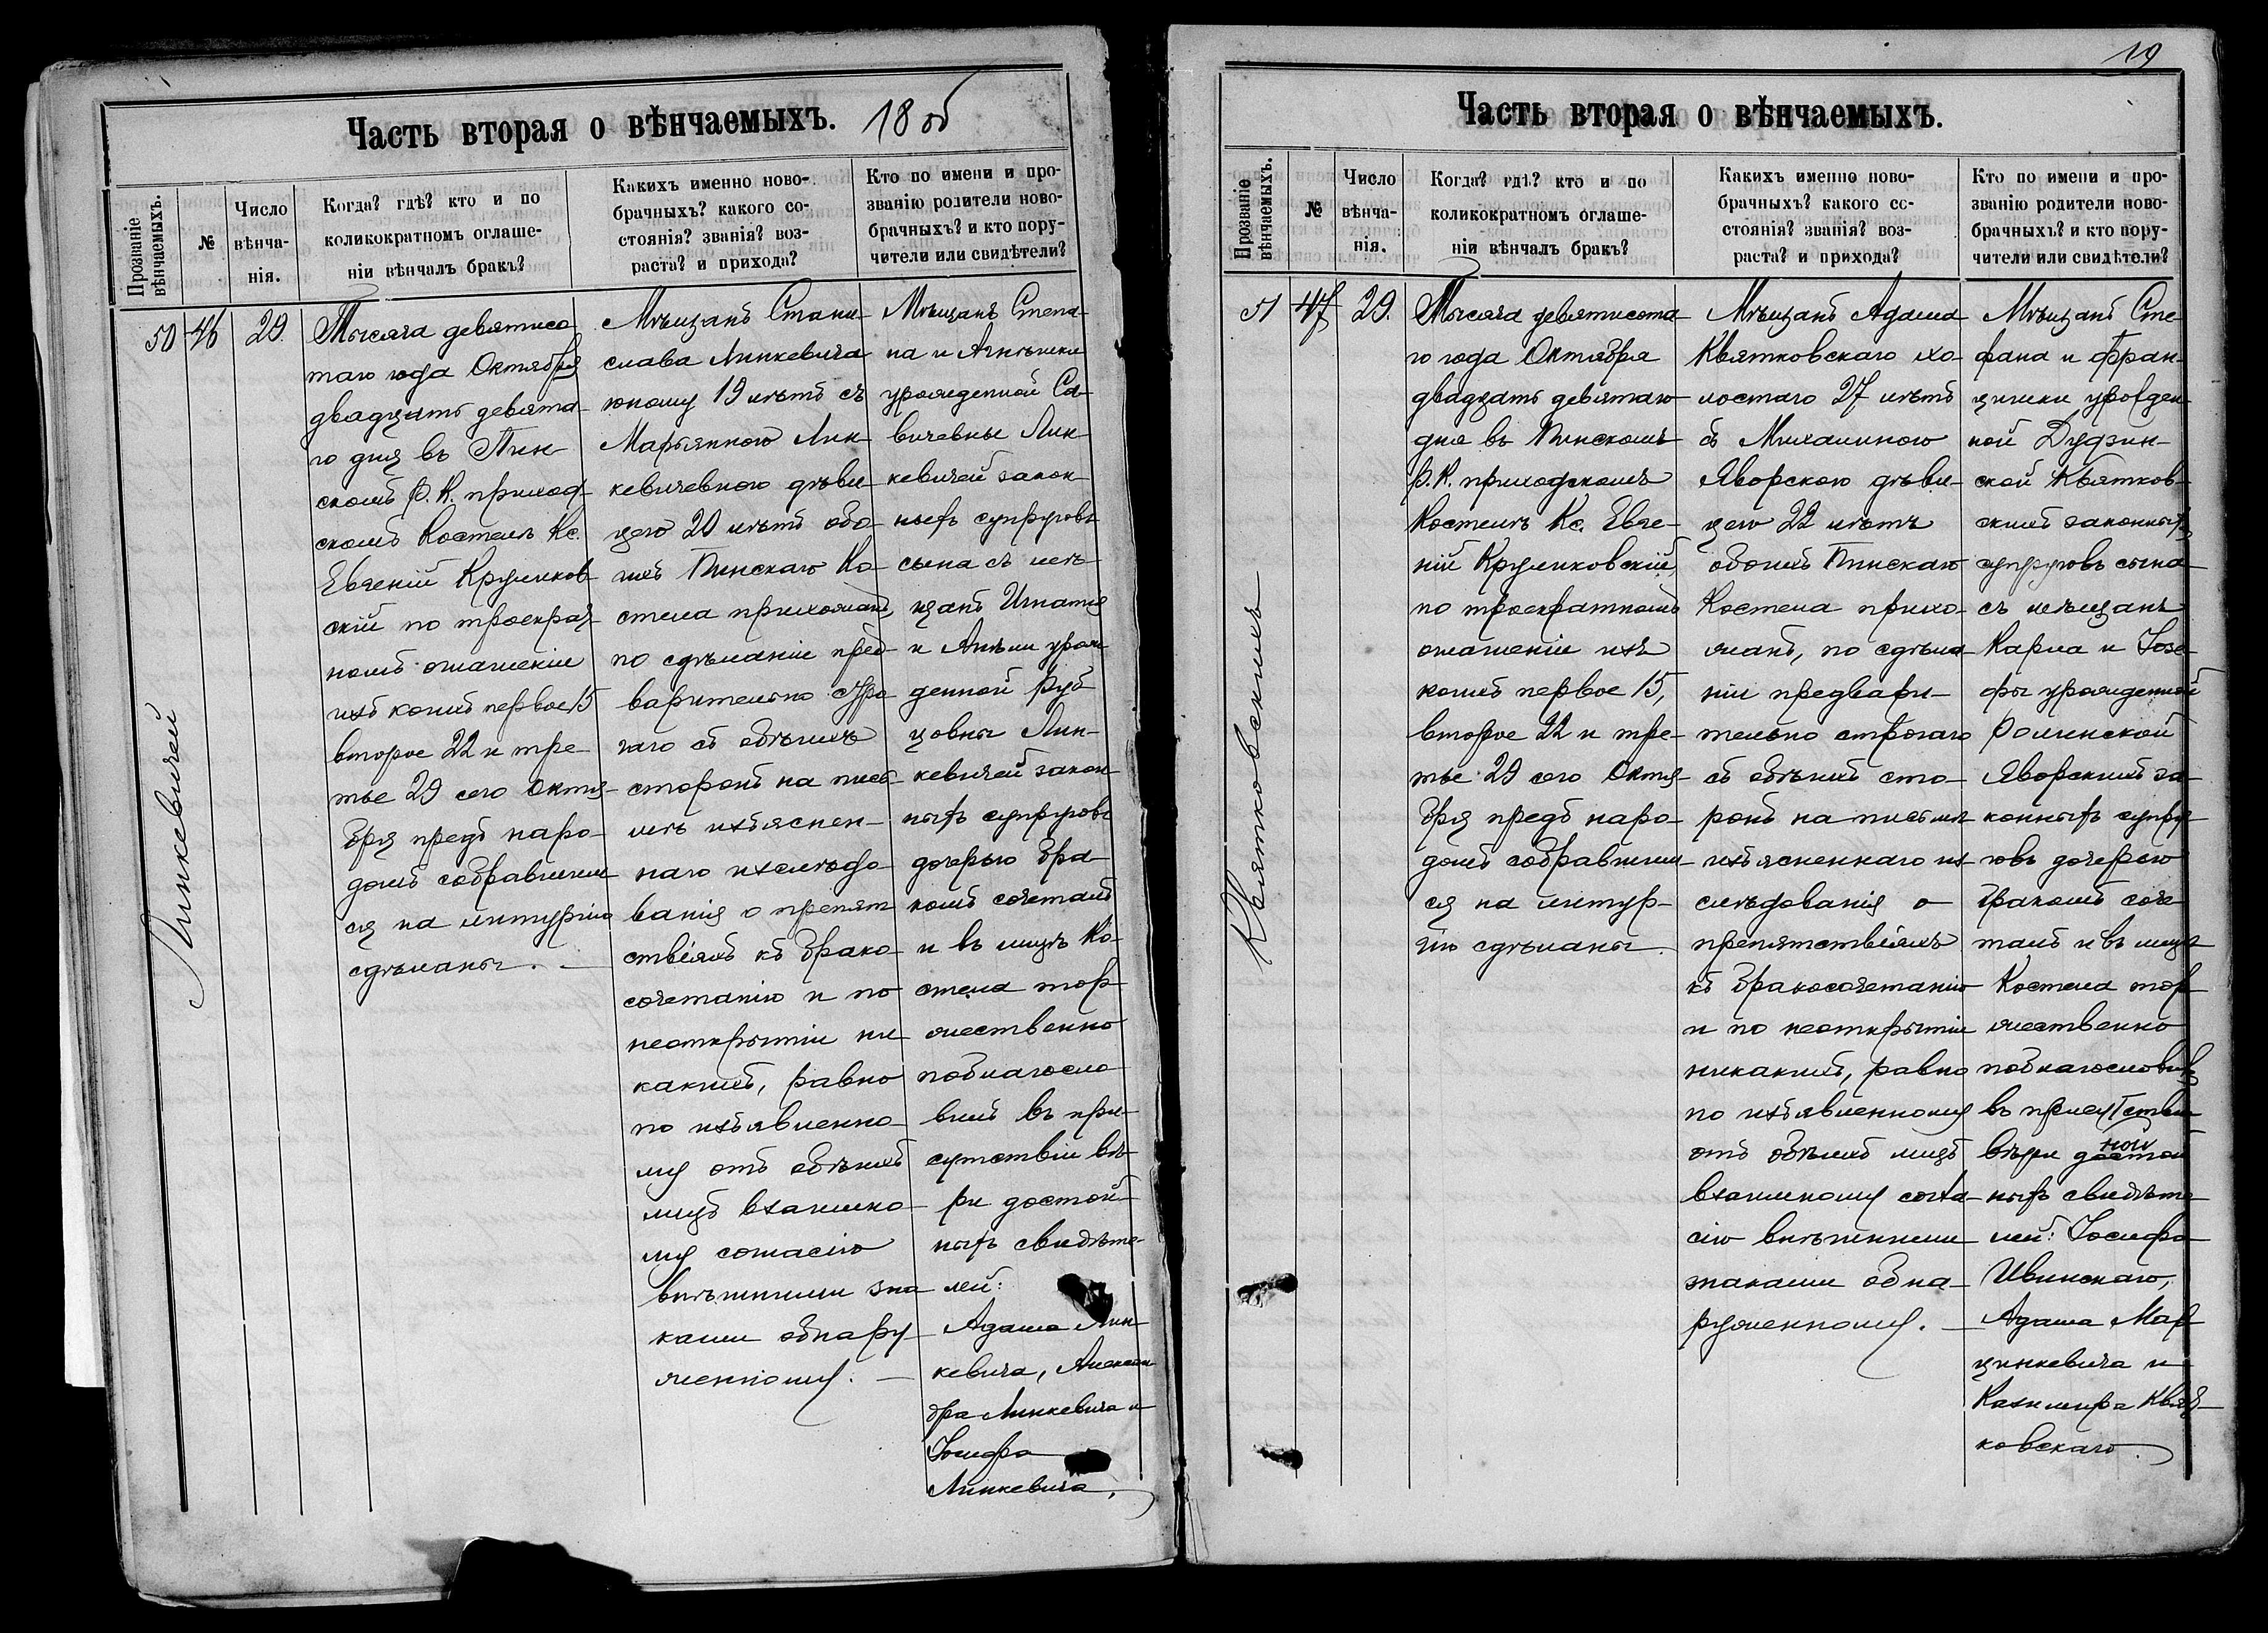 Часть вторая о вѣнчаемыхъ.
18 об
Прозваніе вѣнчаемыхъ.
№
Число вѣнча-
нія.
Когда? гдѣ? кто и по
коликократномъ оглаше-
ніи вѣнчалъ бракъ?
Какихъ именно ново-
брачныхъ? какого со-
стоянія? званія? воз-
раста? и прихода?
Кто по имени и про-
званію родители ново-
брачныхъ? и кто пору-
чители или свидѣтели?
Линкевичей
50
46
29.
Тысяча девятисо
таго года Октября
двадцать девята-
го дня въ Пин-
скомъ Р. К. приход-
скомъ Костелѣ Кс.
Евгеній Круликов-
скій по троекрат-
номъ оглашеніи
изъ коихъ первое 15
второе 22 и тре-
тье 29 сего Октя-
бря предъ наро-
домъ собравшим-
ся на литургію
сдѣланы. —
Мѣщанъ Стани-
слава Линкевича
юношу 19 лѣтъ съ
Марьянною Лин-
кевичевною дѣви-
цею 20 лѣтъ обо-
ихъ Пинскаго Ко-
стела прихожанъ,
по сдѣланіи пред-
варительно стро-
гаго съ обѣихъ
сторонъ на пись-
мѣ изъяснен-
наго изслѣдо-
ванія о препят-
ствіяхъ къ брако-
сочетанію и по
неоткрытіи ни-
какихъ, равно
по изъявленно-
му отъ обѣихъ
лицъ взаимно-
му согласію
внѣшними зна-
ками обнару-
женному. —
Мѣщанъ Степа-
на и Агнѣшки
урожденной Са-
вичевны Лин-
кевичей закон-
ныхъ супруговъ
сына съ мѣ-
щанъ Игнатія
и Анѣли урож-
денной Руб-
цовны Лин-
кевичей закон-
ныхъ супруговъ
дочерью бра-
комъ сочеталъ
и въ лицѣ Ко-
стела тор-
жественно
поблагосло-
вилъ въ при-
сутствіи вѣ-
ры достой-
ныхъ свидѣте-
лей:
Адама Лин-
кевича, Алексан-
дра Линкевича и
Іосифа
Линкевича.
19
Часть вторая о вѣнчаемыхъ.
Прозваніе вѣнчаемыхъ.
№
Число вѣнча-
нія.
Когда? гдѣ? кто и по
коликократномъ оглаше-
ніи вѣнчалъ бракъ?
Какихъ именно ново-
брачныхъ? какого со-
стоянія? званія? воз-
раста? и прихода?
Кто по имени и про-
званію родители ново-
брачныхъ? и кто пору-
чители или свидѣтели?
Квятковскихъ
51
47
29.
Тысяча девятисота-
го года Октября
двадцать девятаго
дня въ Пинскомъ
Р. К. приходскомъ
Костелѣ Кс. Евге-
ній Круликовскій,
по троекратномъ
оглашеніи изъ
коихъ первое 15,
второе 22 и тре-
тье 29 сего Октя-
бря предъ наро-
домъ собравшим-
ся на литур-
гію сдѣланы.
Мѣщанъ Адама
Квятковскаго хо-
лостаго 27 лѣтъ
съ Михалиною
Яворскою дѣви-
цею 22 лѣтъ
обоихъ Пинскаго
Костела прихо-
жанъ, по сдѣла-
ніи предвари-
тельно строгаго
съ обѣихъ сто-
ронъ на письмѣ
изъясненнаго из-
слѣдованія о
препятствіяхъ
къ бракосочетанію
и по неоткрытіи
никакихъ, равно
по изъявленному
отъ обѣихъ лицъ
взаимному согла-
сію внѣшними
знаками обна-
руженному. —
Мѣщанъ Сте-
фана и Фран-
цишки урожден-
ной Дудзин-
ской Квятков-
скихъ законныхъ
супруговъ сына
съ мѣщанъ
Карла и Іозе-
фы урожденной
Ролинской
Яворскихъ за-
конныхъ супру-
говъ дочерью
бракомъ соче-
талъ и въ лицѣ
Костела тор-
жественно
поблагословилъ
въ присутствіи
вѣры достой
ныхъ свидѣте-
лей: Іосифа
Ивинскаго,
Адама Мар-
цинкевича и
Казимира Квят-
ковскаго.